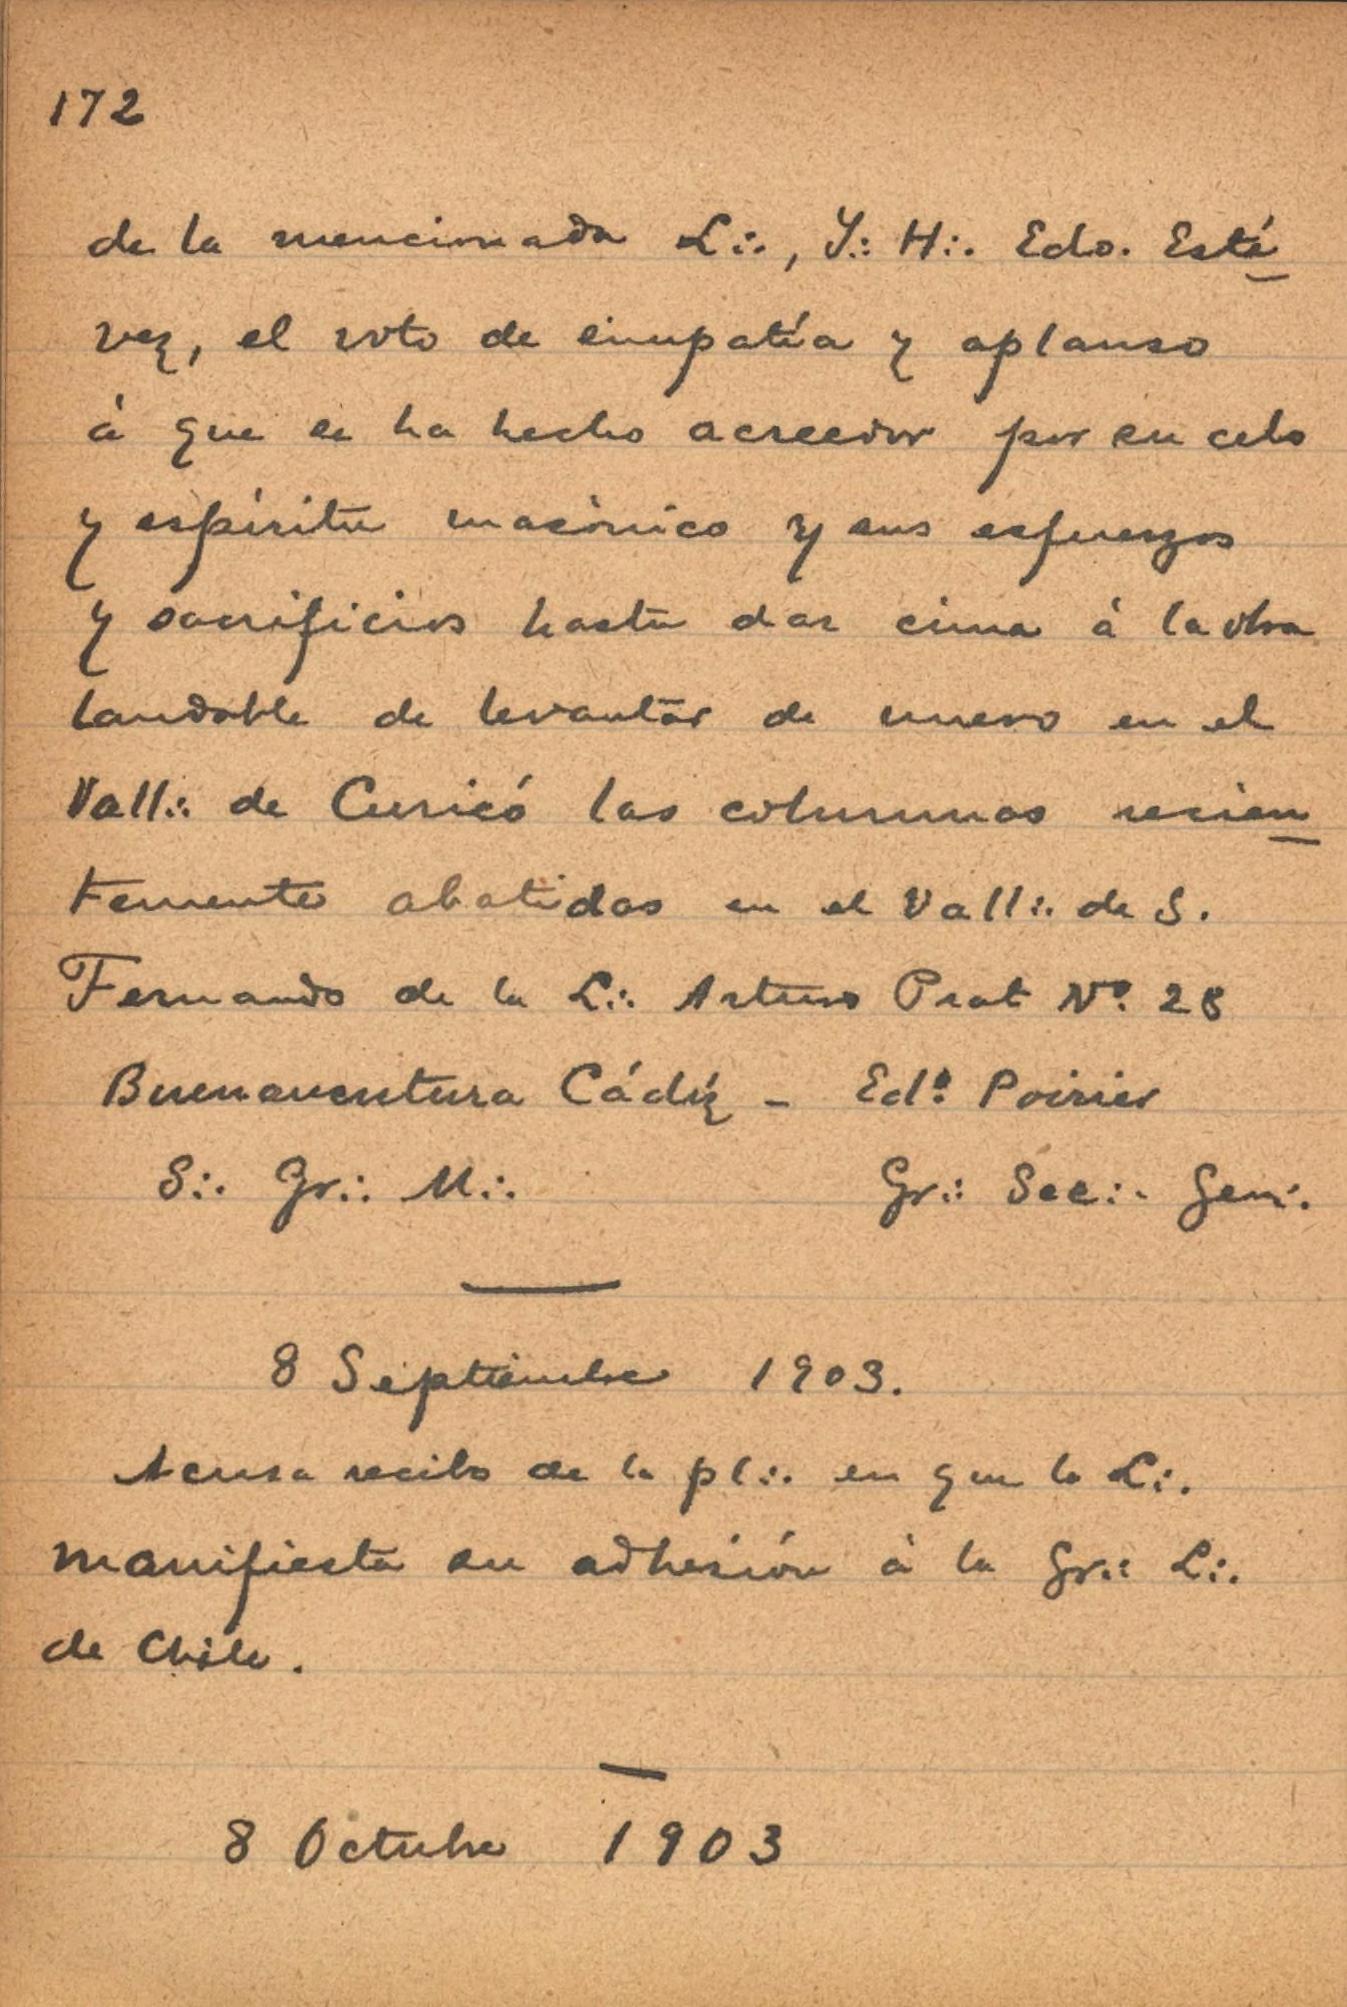 172
de la mencionada L∴, Y∴ H∴ Edo. Esté
vez, el voto de simpatía y aplauso
á que se ha hecho acreedor por su celo
y espíritu masónico y sus esfuerzos
y sacrificios hasta dar cima á la obra
laudable de levantar de nuevo en el
Vall∴ de Curicó las columnas recien
temente abatidas en el Vall∴ de S.
Fernando de la L∴ Arturo Prat Nº. 28
Buenaventura Cádiz - Edº. Poirier
S∴ Gr∴ M∴ Gr∴ Sec∴ Gen∴
8 Septiembre 1903.
Acusa recibo de la pl∴ en que la L∴
manifiesta su adhesión á la Gr∴ L∴
de Chile.
8 Octubre 1903